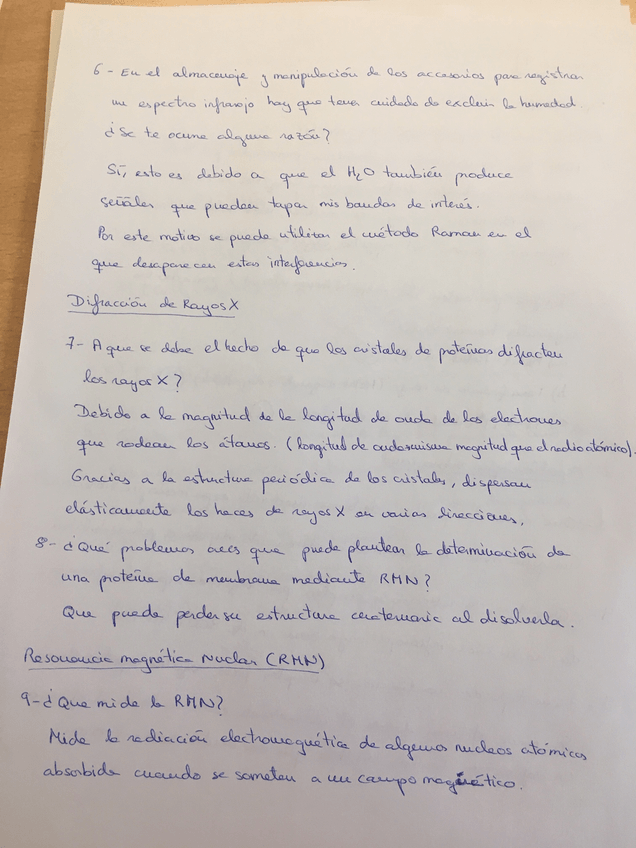 6- En el almacenaje y manipulación de los accesorios para registrar
un espectro infrarojo hay que tener cuidado de excluir la humedad.
¿Se te ocurre alguna razón?
Sí, esto es debido a que el H₂O también produce
señales que pueden tapar mis bandas de interés.
Por este motivo se puede utilizar el método Raman en el
que desaparecen estas interferencias.
Difracción de Rayos X
7- A que se debe el hecho de que los cristales de proteínas difracten
los rayos X?
Debido a la magnitud de la longitud de onda de los electrones
que rodean los átomos. (longitud de onda misma magnitud que el radio atómico).
Gracias a la estructura periódica de los cristales, dispersan
elásticamente los haces de rayos X en varias direcciones.
8- ¿Qué problemas crees que puede plantear la determinación de
una proteína de membrana mediante RMN?
Que puede perder su estructura cuaternaria al disolverla.
Resonancia magnética Nuclear (RMN)
9- ¿Que mide la RMN?
Mide la radiación electromagnética de algunos nucleos atómicos
absorbida cuando se someten a un campo magnético.